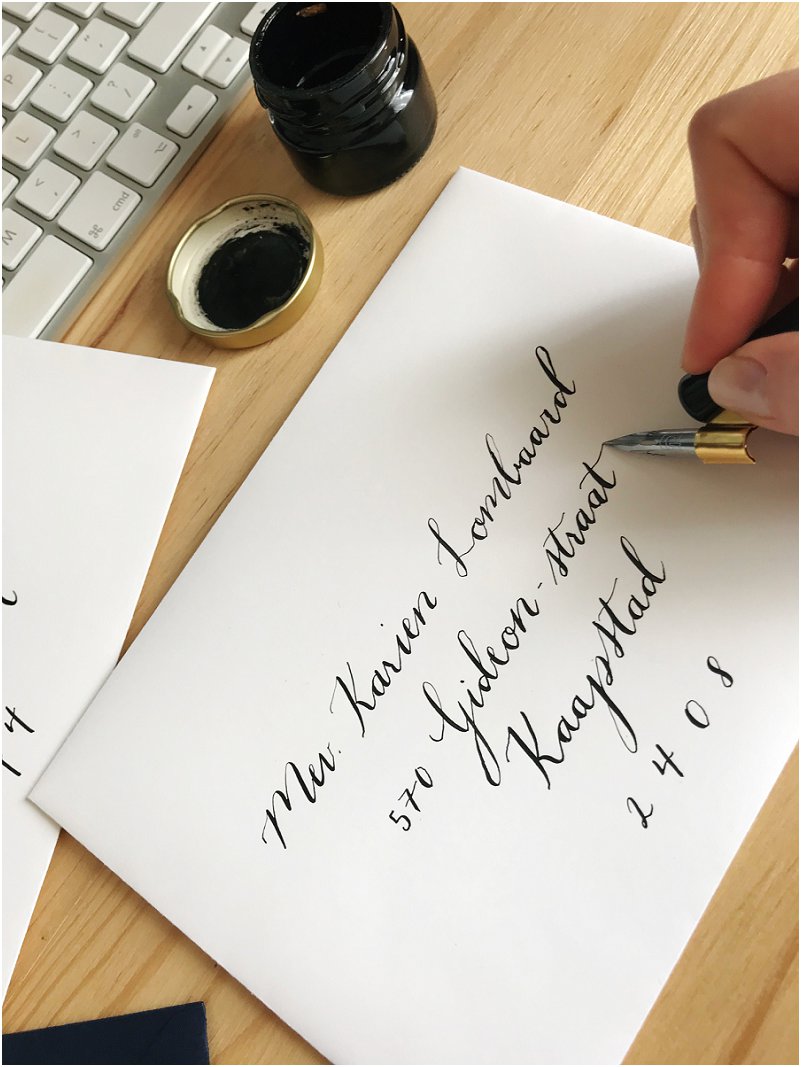 Mev. Karien Lombaard
570 Gideon-straat
Kaapstad
2408
14
cmd
⌘
alt
P
L
M